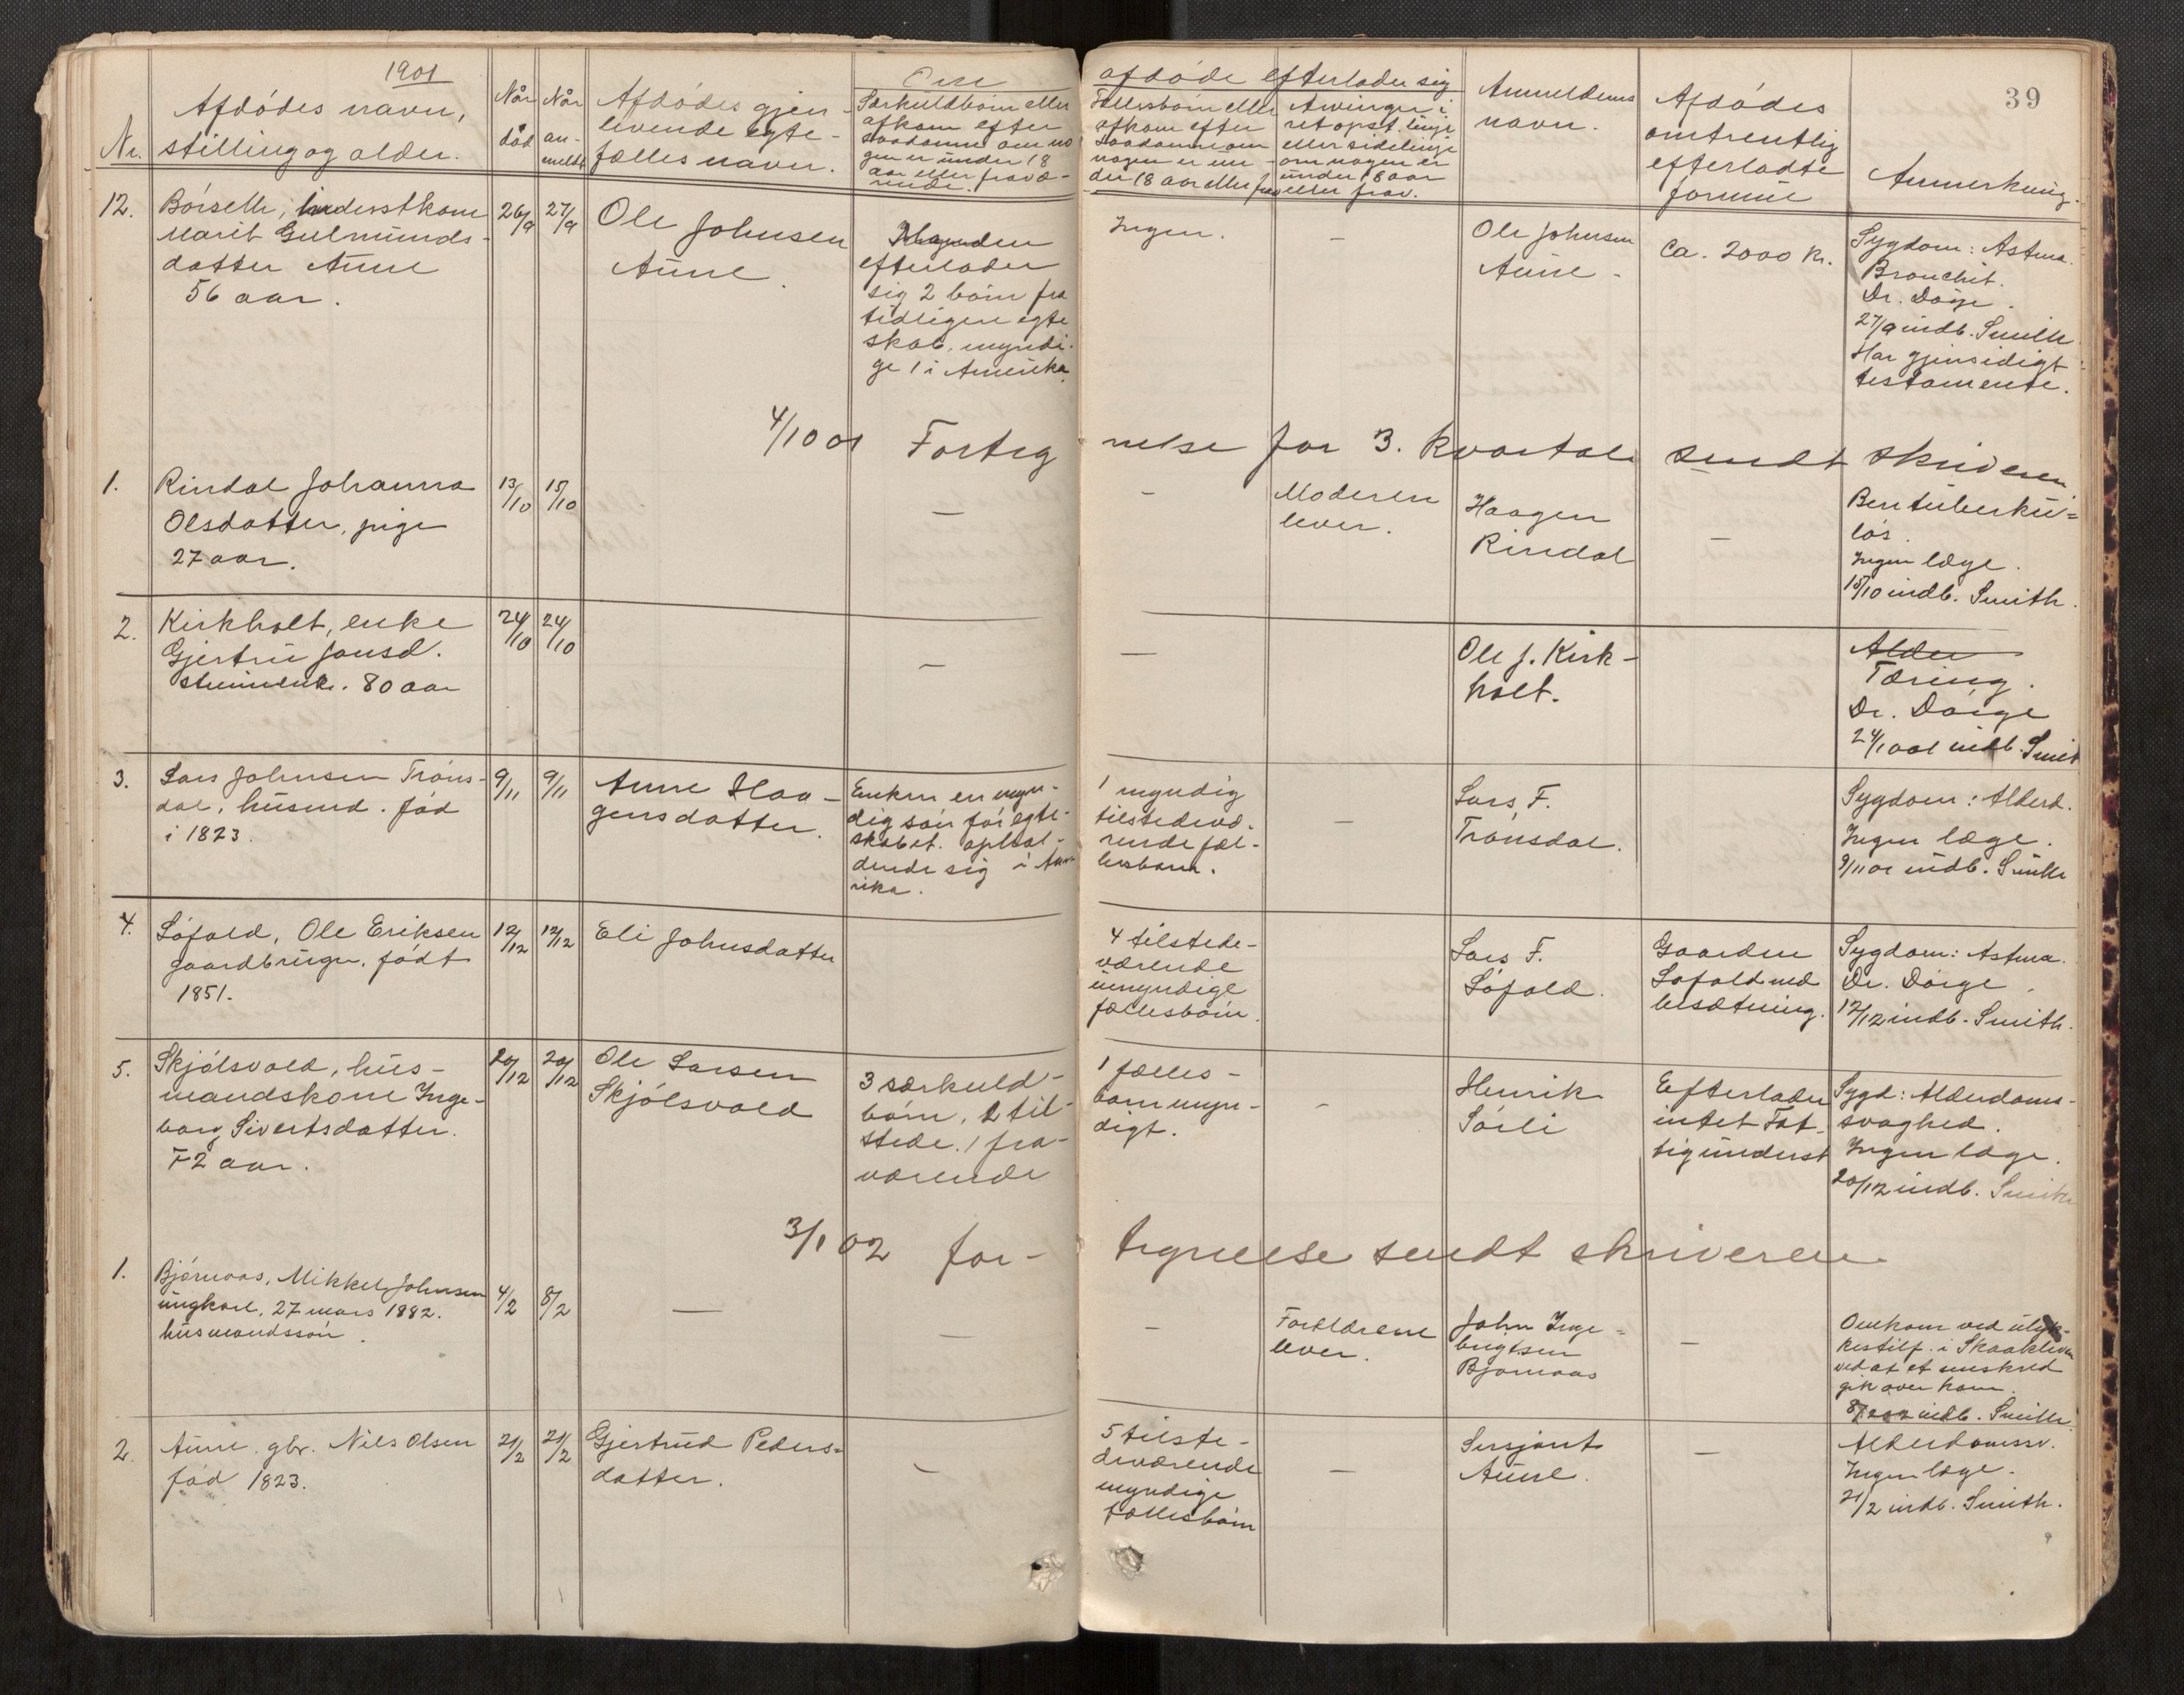 39
1901
Nr.
Afdødes navn,
stilling og alder.
Når
død
Når
an-
meldt
Afdødes gjen-
levende egte-
fælles navn.
Om
afdøde efterlader sig
Særkuldbørn eller
afkom efter
saadanne om no
gen er under 18
aar eller fravæ-
rende.
Fællesbørn eller
afkom efter
saadanne om
nogen er un-
der 18 aar eller frav
Arvinger i
ret opst. linje
eller sidelinje
om nogen er
under 18 aar
eller frav.
Anmelderens
navn.
Afdødes
omtrentlig
efterladte
formue
Anmerkning.
12.
Børseth, inderstkone
Marit Gulmunds-
datter Aune
56 aar.
26/9
27/9
Ole Johnsen
Aune.
efterlader
sig 2 børn fra
tidligere egte
skab, myndi-
ge 1 i Amerika
Ingen.
—
Ole Johnsen
Aune -
Ca. 2000 Kr.
Sygdom: Astma.
Bronchit.
Dr. Døge.
27/9 indb. Smith
Har gjensidigt
testamente.
4/10 01 Forteg nelse for 3. kvartal sendt skriveren
1.
Rindal Johanna
Olsdatter, pige
27 aar.
13/10
15/10
—
-
Moderen
lever.
Haagen
Rindal
—
Bentuberku=
løs.
Ingen læge.
15/10 indb. Smith.
2.
Kirkholt, enke
Gjertru Jonsd.
80 aar
24/10
24/10
—
—
Ole J. Kirk-
holt.
Alder
Tæring.
Dr. Døige
24/10 01 indb. Smit
3.
Lars Johnsen Trøns-
dal, husmd. fød
i 1823.
9/11
9/11
Anne Haa-
gensdatter.
Enken en myn-
dig søn før egte-
skabet. ophol-
dende sig i Ame
rika.
1 myndig
tilstedevæ-
rende fæl-
lesbarn.
—
Lars F.
Trønsdal.
Sygdom: Alderd.
Ingen læge.
9/11 01 indb. Smith
4.
Løfald, Ole Eriksen
gaardbruger, født
1851.
12/12
12/12
Eli Johnsdatter
4 tilstede-
værende
umyndige
fællesbørn.
Lars F.
Løfald.
Gaarden
Løfald med
besætning.
Sygdom: Astma.
Dr. Døige.
12/12 indb. Smith.
5.
Skjølsvold, hus-
mandskone Inge-
borg Sivertsdatter.
72 aar.
20/12
20/12
Ole Larsen
Skjølsvold
3 særkuld-
børn, 2 til-
stede. 1 fra-
værende
1 fælles-
barn myn-
digt.
-
Henrik
Sørli
Efterlader
intet Fat-
tigunderst
Sygd: Alderdoms-
svaghed.
Ingen læge.
20/12 indb. Smith
3/1 02 for- tegnelse sendt skriveren
1.
Bjørnaas, Mikkel Johnsen
ungkarl, 27 mars 1882.
husmandssøn.
4/2
8/2
—
—
-
Forældrene
lever.
John Inge=
brigtsen
Bjørnaas
—
Omkom ved ulyk-
kestilf. i Skaakleiven
ved at et sneskred
gik over ham.
8/2 02 indb. Smith
2.
Aune, gbr. Nils Olsen
fød 1823.
21/2
21/2
Gjertrud Peders-
datter.
-
5 tilste-
deværende
myndige
fællesbørn
—
Sersjant
Aune.
—
Alderdomssv.
Ingen læge.
21/2 indb. Smith.